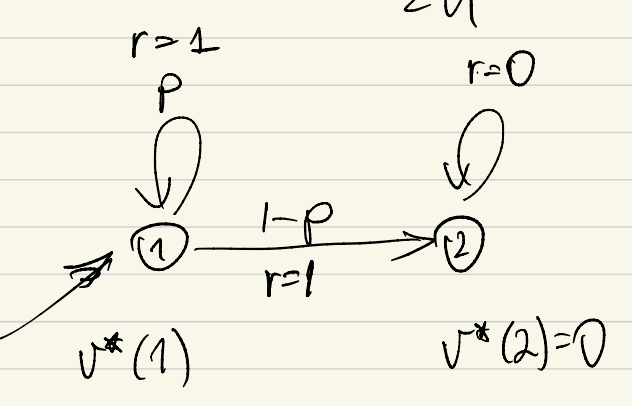 r=1
p
r=0
1-p
1
2
r=1
v*(1)
v*(2)=0